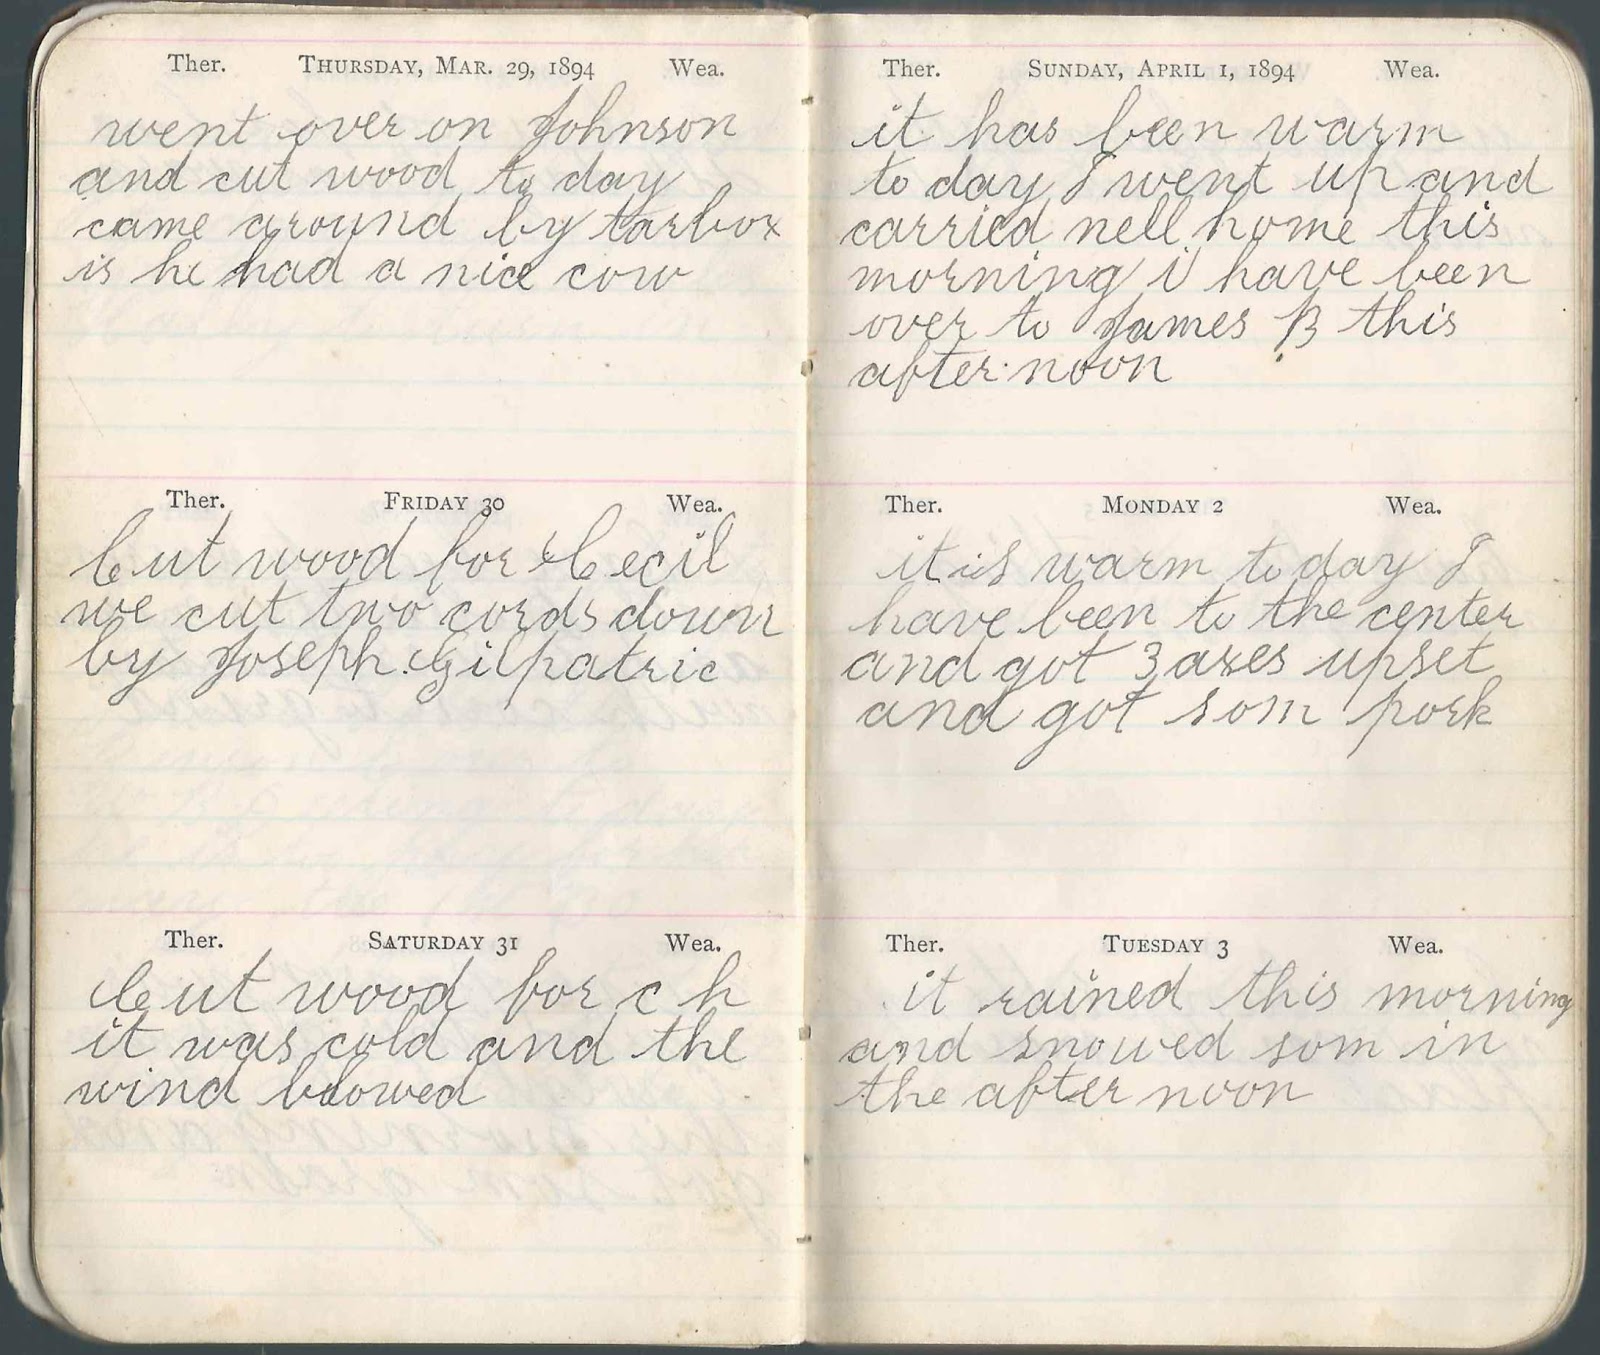 Ther. Thursday, Mar. 29, 1894 Wea.
went over on Johnson
and cut wood to day
came around by tarbox
is he had a nice cow
Ther. Friday 30 Wea.
Cut wood for Cecil
we cut two cords down
by Joseph Gilpatric
Ther. Saturday 31 Wea.
Cut wood for c h
it was cold and the
wind blowed
Ther. Sunday, April 1, 1894 Wea.
it has been warm
to day I went up and
carried nell home this
morning i have been
over to James B this
after noon
Ther. Monday 2 Wea.
it is warm to day I
have been to the center
and got 3 axes upset
and got som pork
Ther. Tuesday 3 Wea.
it rained this morning
and snowed som in
the after noon